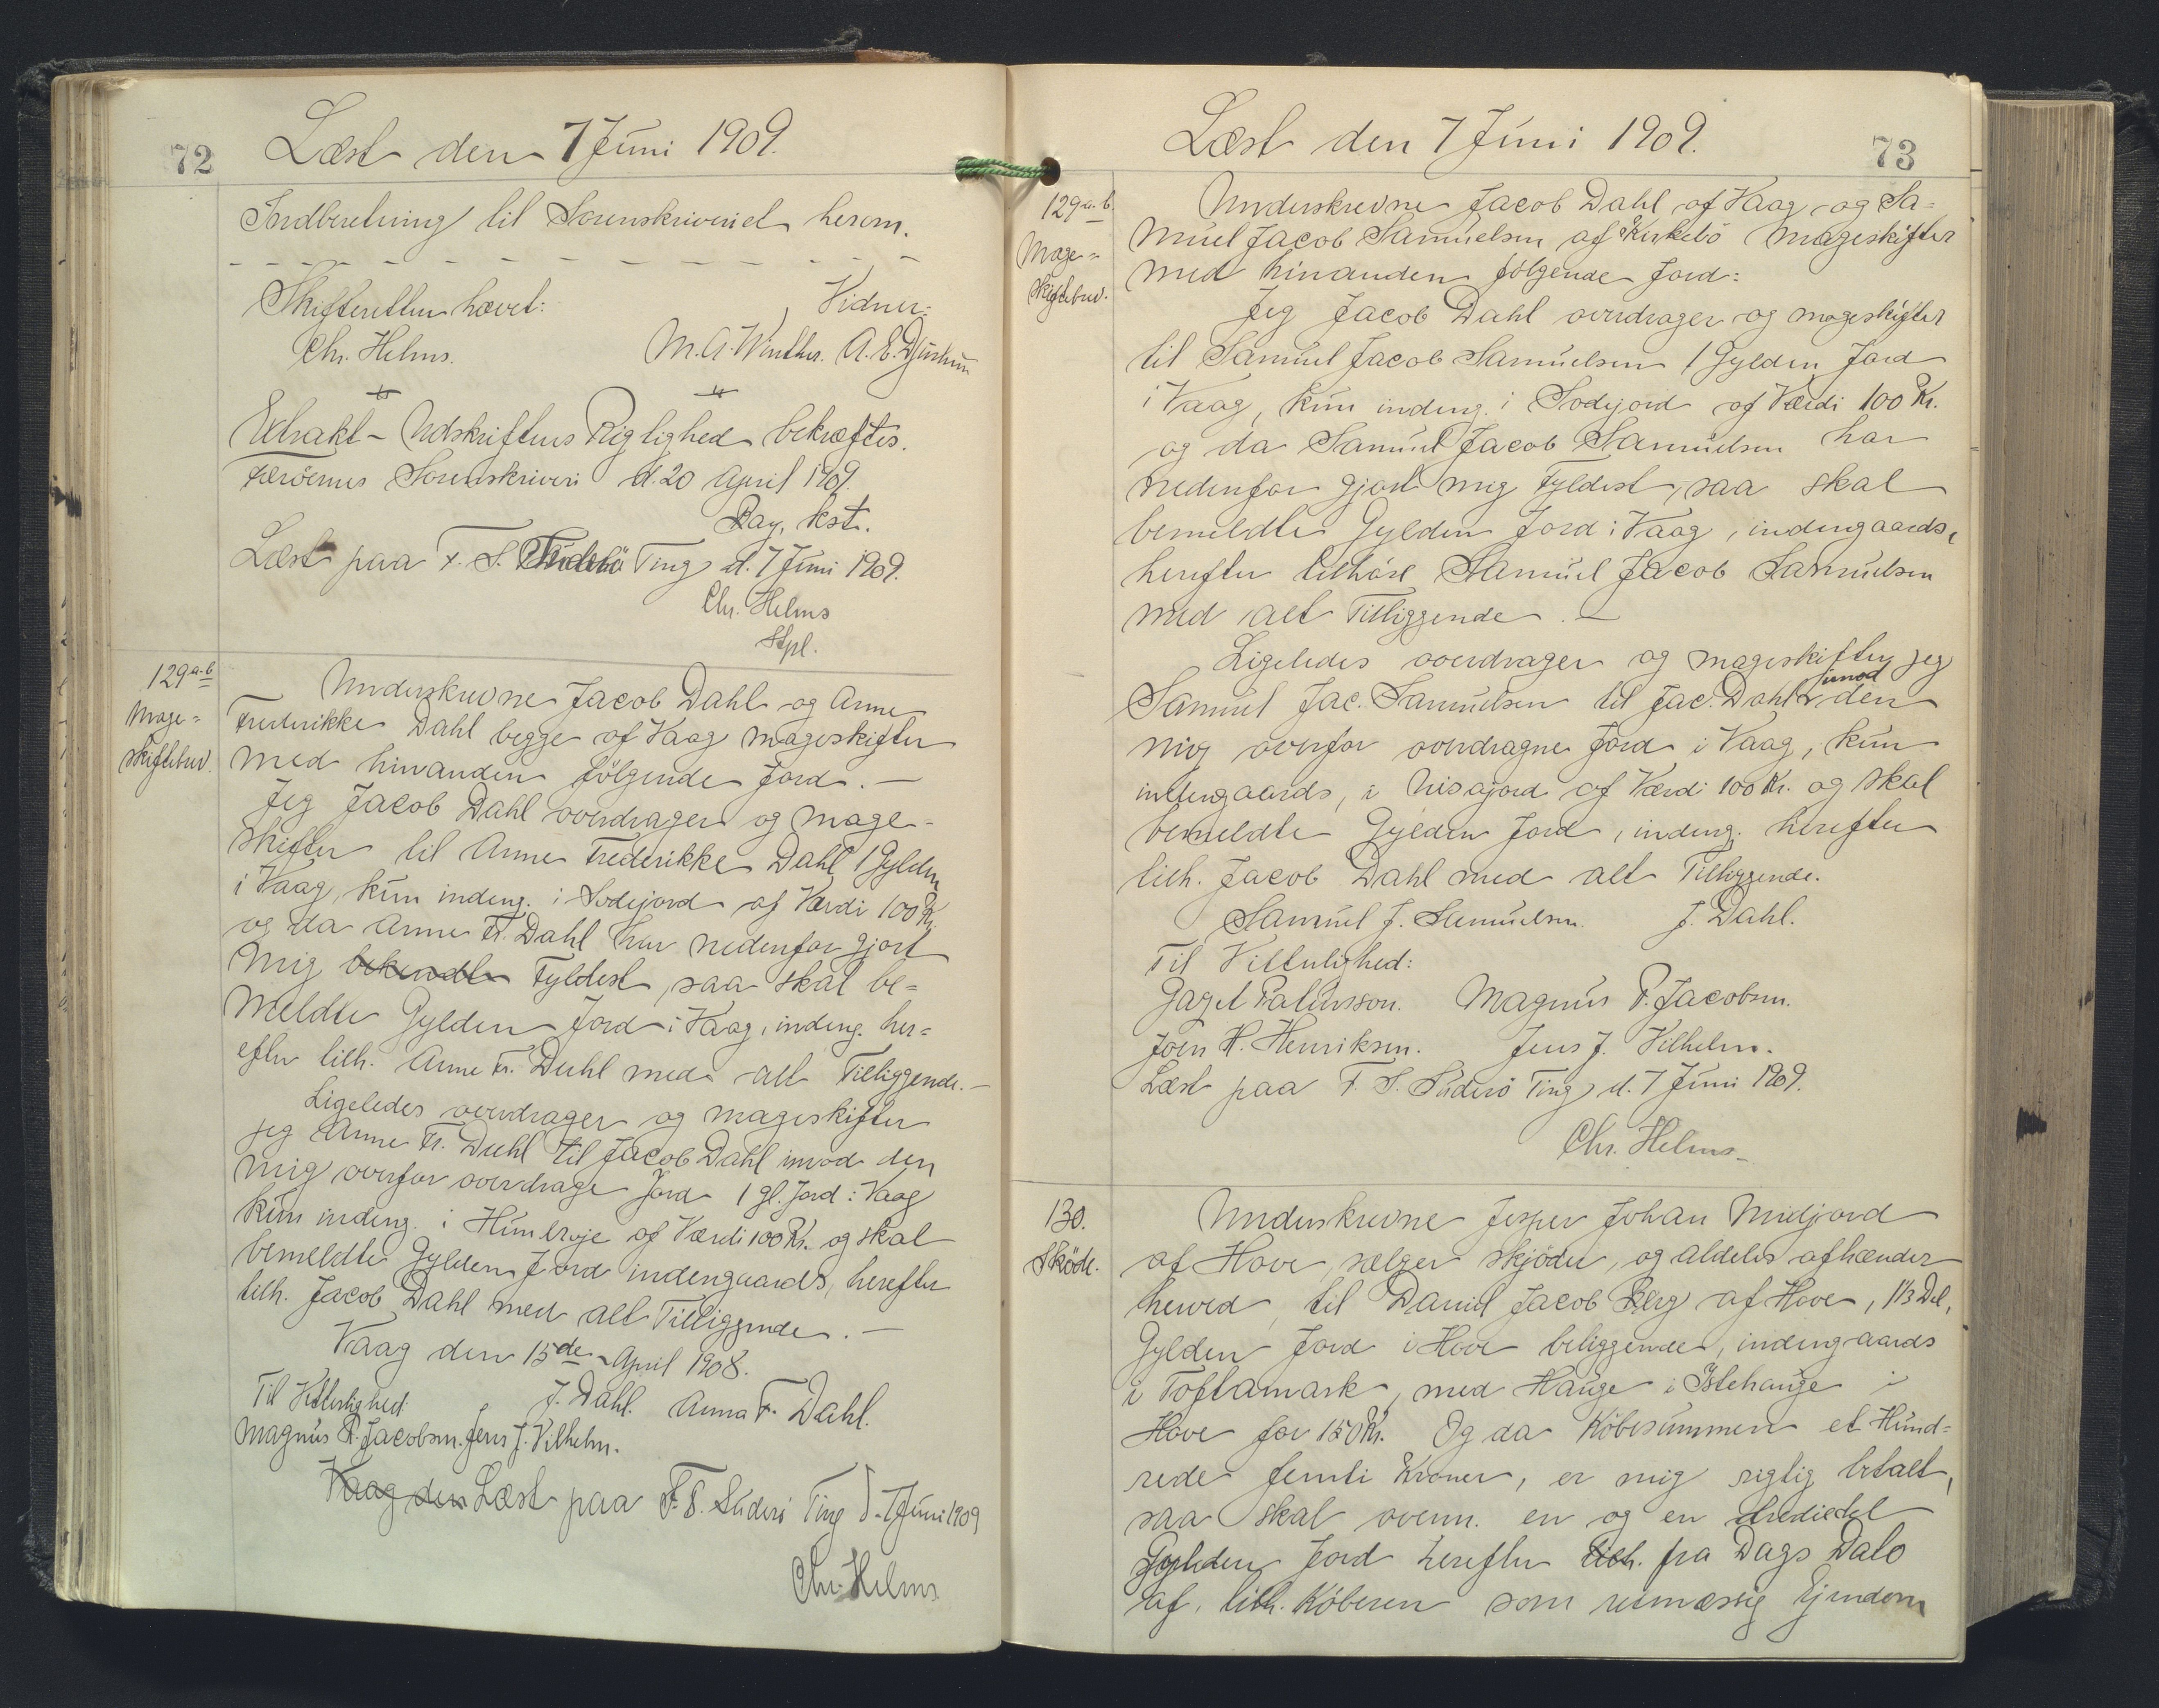 72
Læst den 7 Juni 1909.
Indberetning til Sorenskriveriet herom.
Skifteretten hævet:
Vidner:
Chr. Helms.
M. A. Winther. A. E.
Extrakt-Udskriftens Rigtighed bekræftes.
Færöernes Sorenskriveri d. 20 April 1909.
Ray, kst.
Læst paa F. S. Suderö Ting d. 7 Juni 1909.
Chr. Helms
Stpl.
129 a-b
Mage-
skiftebrev.
Underskrevne Jacob Dahl og Anne
Frederikke Dahl begge af Vaag mageskifter
med hinanden følgende Jord.—
Jeg Jacob Dahl overdrager og mage-
skifter til Anne Frederikke Dahl 1 Gylden
i Vaag, kun indeng. i Sodejord af Værdi 100 Kr.
og da Anne Fr. Dahl har nedenfor gjort
mig bekendte Fyldest, saa skal be-
meldte Gylden Jord i Vaag, indeng. her-
efter tilh. Anne Fr. Dahl med alt Tilliggende.—
Ligeledes overdrager og mageskifter
jeg Anne Fr. Dahl til Jacob Dahl imod den
mig ovenfor overdrage Jord 1 gl. Jord i Vaag
kun indeng. i af Værdi 100 Kr. og skal
bemeldte Gylden Jord indengaards, herefter
tilh. Jacob Dahl med alt Tilliggende.—
Vaag den 15de April 1908.
Til Vitterlighed:
J. Dahl. Anna F. Dahl.
Magnus P. Jacobsen. Jens J. Vilhelm.
Vaag den Læst paa F. S. Suderö Ting d. 7 Juni 1909
Chr. Helms
73
Læst den 7 Juni 1909.
129 a-b.
Mage-
skiftebrev.
Underskrevne Jacob Dahl af Vaag og Sa-
muel Jacob Samuelsen af Kirkebö mageskifter
med hinanden følgende Jord:
Jeg Jacob Dahl overdrager og mageskifter
til Samuel Jacob Samuelsen 1 Gylden Jord
i Vaag, kun indeng. i Sodejord af Værdi 100 Kr.
og da Samuel Jacob Samuelsen har
nedenfor gjort mig Fyldest, saa skal
bemeldte Gylden Jord i Vaag, indengaards,
herefter tilhöre Samuel Jacob Samuelsen
med alt Tilliggende.—
Ligeledes overdrager og mageskifter jeg
Samuel Jac. Samuelsen til Jac. Dahl imod den
mig ovenfor overdragne Jord i Vaag, kun
indengaards, i Nisajord af Værdi 100 Kr. og skal
bemeldte Gylden Jord, indeng. herefter
tilh. Jacob Dahl med alt Tilliggende.
Samuel J. Samuelsen. J. Dahl.
Til Vitterlighed:
Magnus P. Jacobsen.
Joen H. Henriksen. Jens J. Vilhelm.
Læst paa F. S. Suderö Ting d. 7 Juni 1909.
Chr. Helms
130.
Sköde.
Underskrevne Jesper Johan Midjord
af Hove, sælger skjöder, og aldeles afhænder
herved, til Daniel Jacob Berg af Hove, 1 1/3 Del,
Gylden Jord i Hove beliggende, indengaards
i Toftamark, med Hauge i Istehauge i
Hove for 150 Kr. Og da Köbesummen et Hund-
rede femti Kroner, er mig rigtig betalt,
saa skal ovenn. en og en trediedel
Gylden Jord herefter tilh. fra Dags Dato
af, tilh. Köberen som retmæssig Ejendom